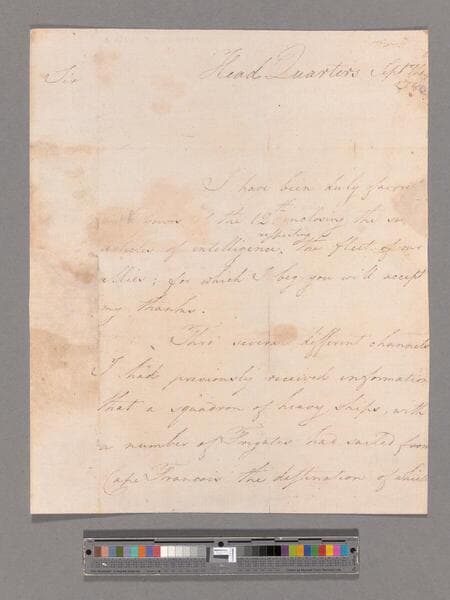 Head Quarters Sept
1780
Sir
I have been duly favor
with yours of the 12th enclosing the
respecting
articles of intelligence, the fleet of our
allies; for which I beg you will accept
my thanks.
Thro' several different channels
I had previously received information
that a squadron of heavy ships, with
a number of Frigates had sailed from
Cape Francois the destination of which